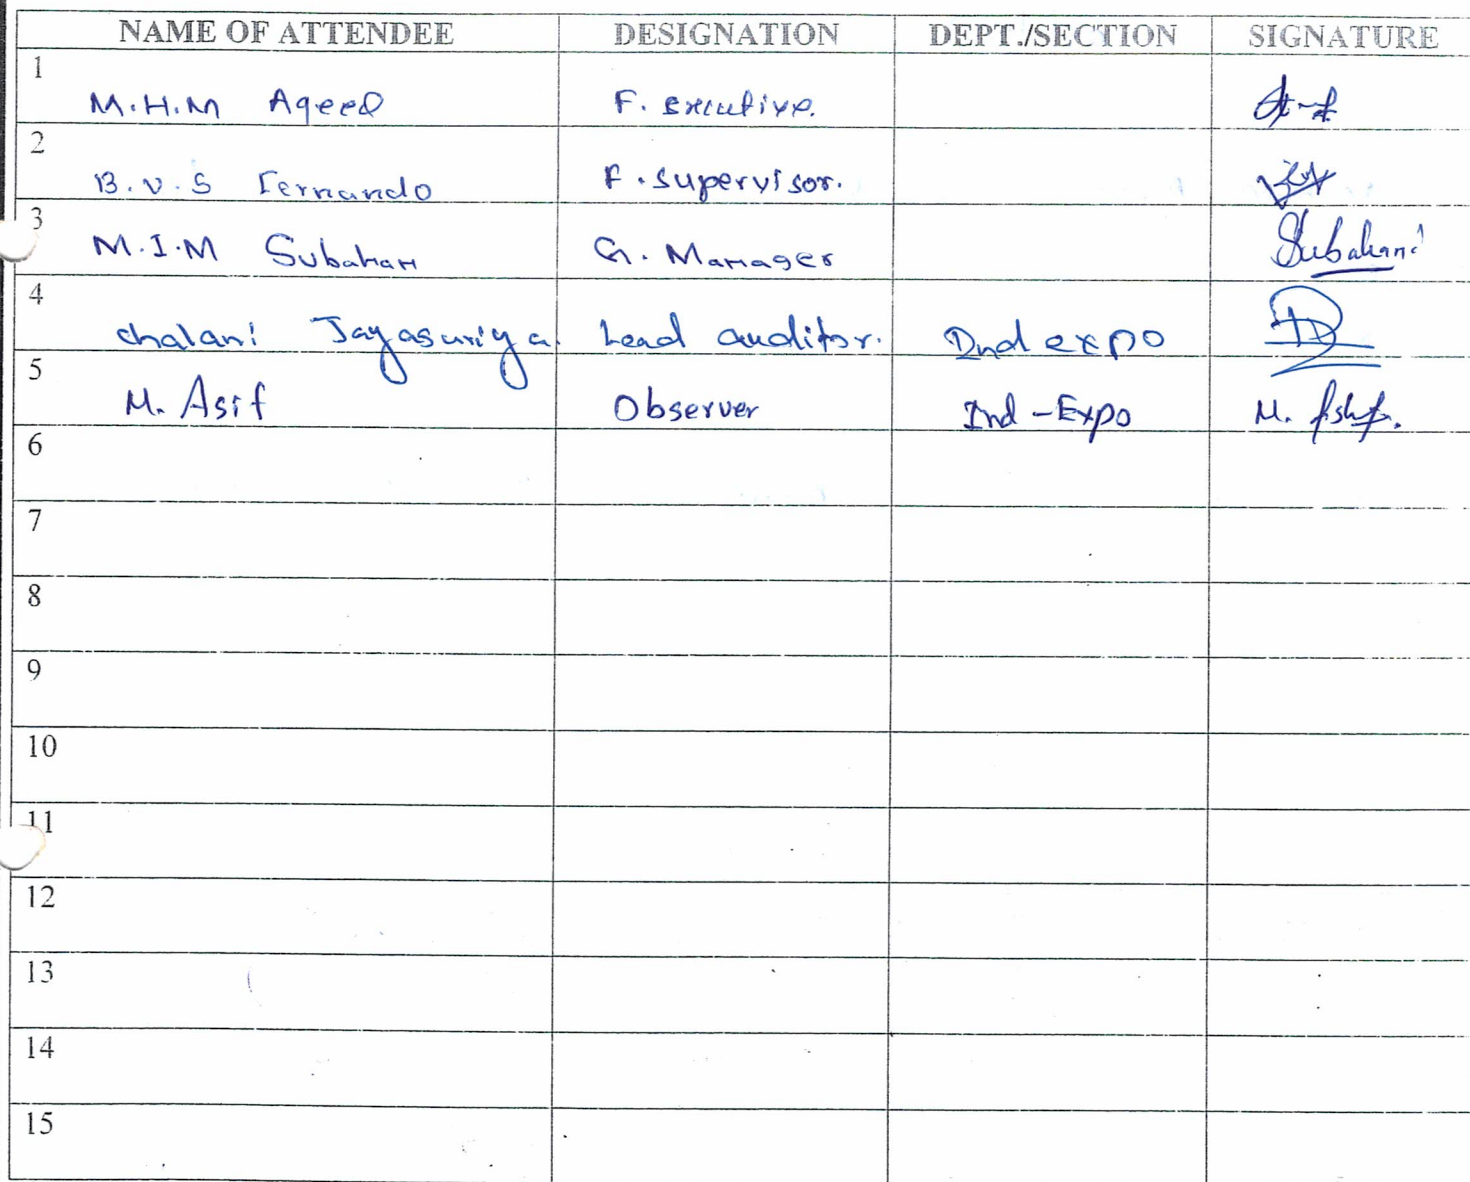 NAME OF ATTENDEE DESIGNATION DEPT./SECTION SIGNATURE
1
M.H.M Aqeel F. executive.
2
B.V.S Fernando F. supervisor.
3
M.I.M Subahan G. Manager Subahani
4
chalani Jayasuriya. Lead auditor. Ind expo
5
M. Asif Observer Ind-Expo M.
6
7
8
9
10
11
12
13
14
15